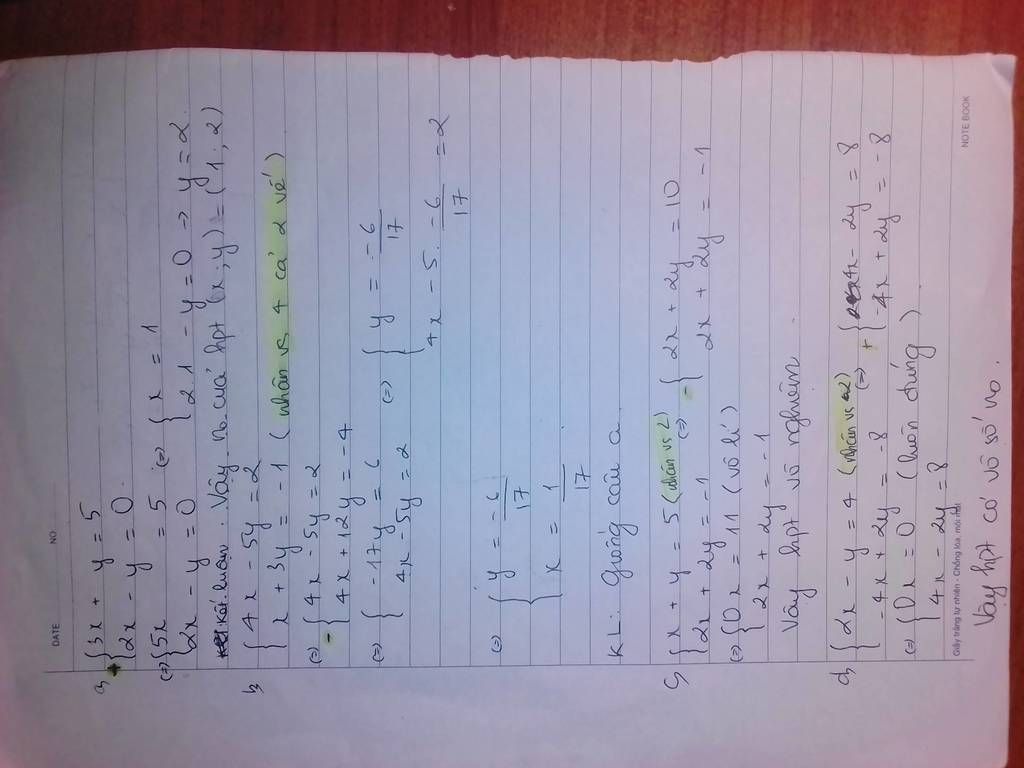 DATE NO
a, + { 3x + y = 5
2x - y = 0
(=) { 5x = 5 (=) { x = 1
2x - y = 0 2.1 - y = 0 → y = 2.
Kết luận. Vậy no của hpt (x; y) = (1; 2)
b, { 4x - 5y = 2
x + 3y = -1 (nhân vs 4 cả 2 vế)
(=) - { 4x - 5y = 2
4x + 12y = -4
(=) { -17y = 6 (=) { y = -6/17
4x - 5y = 2 4x - 5. -6/17 = 2
(=) { y = -6/17
x = 1/17
KL: giống câu a.
c, { x + y = 5 (nhân vs 2) (=) - { 2x + 2y = 10
2x + 2y = -1 2x + 2y = -1
(=) { 0x = 11 (vô lí)
2x + 2y = -1
Vậy hpt vô nghiệm.
d, { 2x - y = 4 (nhân vs 2) (=) + { 4x - 2y = 8
-4x + 2y = -8 -4x + 2y = -8
(=) { 0x = 0 (luôn đúng)
4x - 2y = 8
Giấy trắng tự nhiên - Chống lóa, mỏi mắt NOTE BOOK
Vậy hpt có vô số no.